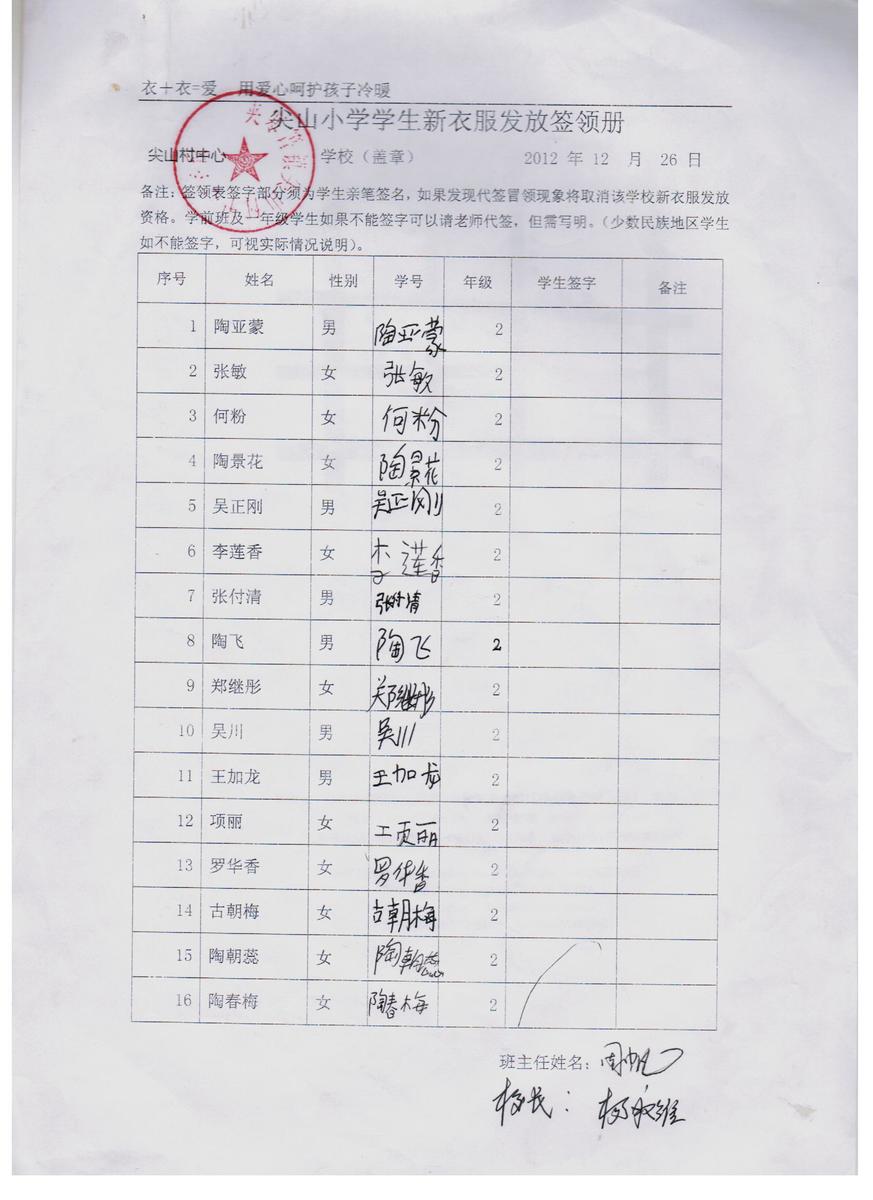 衣+衣=爱 用爱心呵护孩子冷暖
尖山小学学生新衣服发放签领册
尖山村中心 学校（盖章） 2012 年 12 月 26 日
备注：签领表签字部分须为学生亲笔签名，如果发现代签冒领现象将取消该学校新衣服发放
资格。学前班及一年级学生如果不能签字可以请老师代签，但需写明。（少数民族地区学生
如不能签字，可视实际情况说明）。
序号 姓名 性别 学号 年级 学生签字 备注
1 陶亚蒙 男 陶亚蒙 2
2 张敏 女 张敏 2
3 何粉 女 何粉 2
4 陶景花 女 陶景花 2
5 吴正刚 男 吴正刚 2
6 李莲香 女 李莲香 2
7 张付清 男 张付清 2
8 陶飞 男 陶飞 2
9 郑继彤 女 郑继彤 2
10 吴川 男 吴川 2
11 王加龙 男 王加龙 2
12 项丽 女 项丽 2
13 罗华香 女 罗华香 2
14 古朝梅 女 古朝梅 2
15 陶朝蕊 女 陶朝蕊 2
16 陶春梅 女 陶春梅 2
班主任姓名：周
校长：杨维